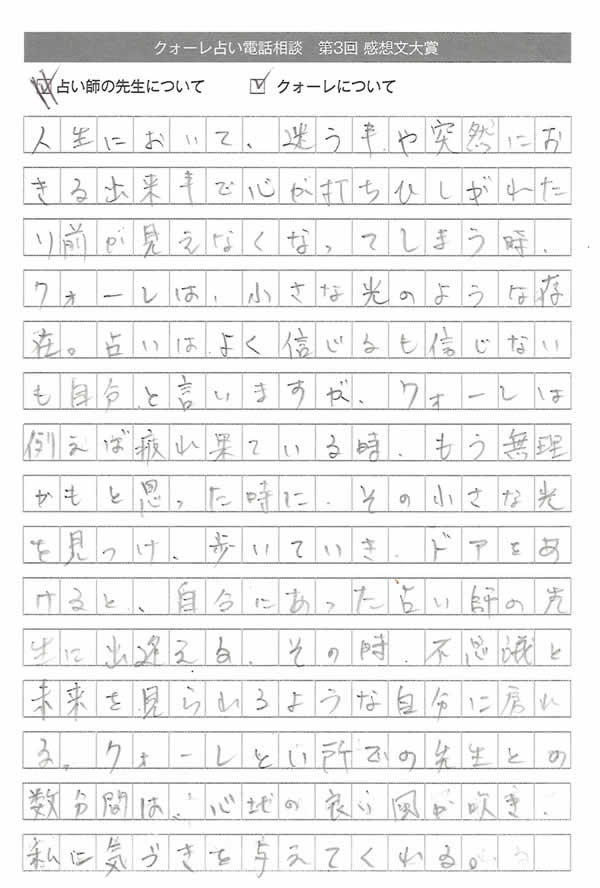 クォーレ占い電話相談 第3回 感想文大賞
占い師の先生について クォーレについて
人生において、迷う事や突然にお
きる出来事で心が打ちひしがれた
り前が見えなくなってしまう時、
クォーレは、小さな光のような存
在。占いはよく信じるも信じない
も自分と言いますが、クォーレは
例えば疲れ果ている時、もう無理
かもと思った時に、その小さな光
を見つけ、歩いていき、ドアをあ
けると、自分にあった占い師の先
生に出逢える。その時、不思議と
未来を見られるような自分に戻れ
る。クォーレとい所での先生との
数分間は、心地の良い風が吹き、
私に気づきを与えてくれる。